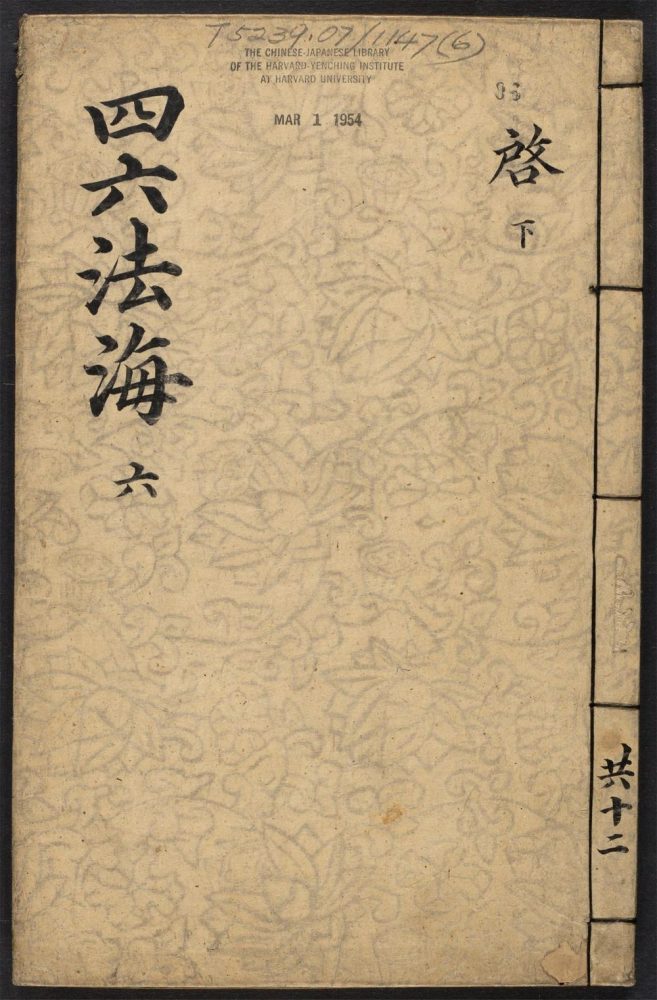 T5239.07/1147(6)
THE CHINESE-JAPANESE LIBRARY
OF THE HARVARD-YENCHING INSTITUTE
AT HARVARD UNIVERSITY
MAR 1 1954
啓
下
四六法海
六
共十二